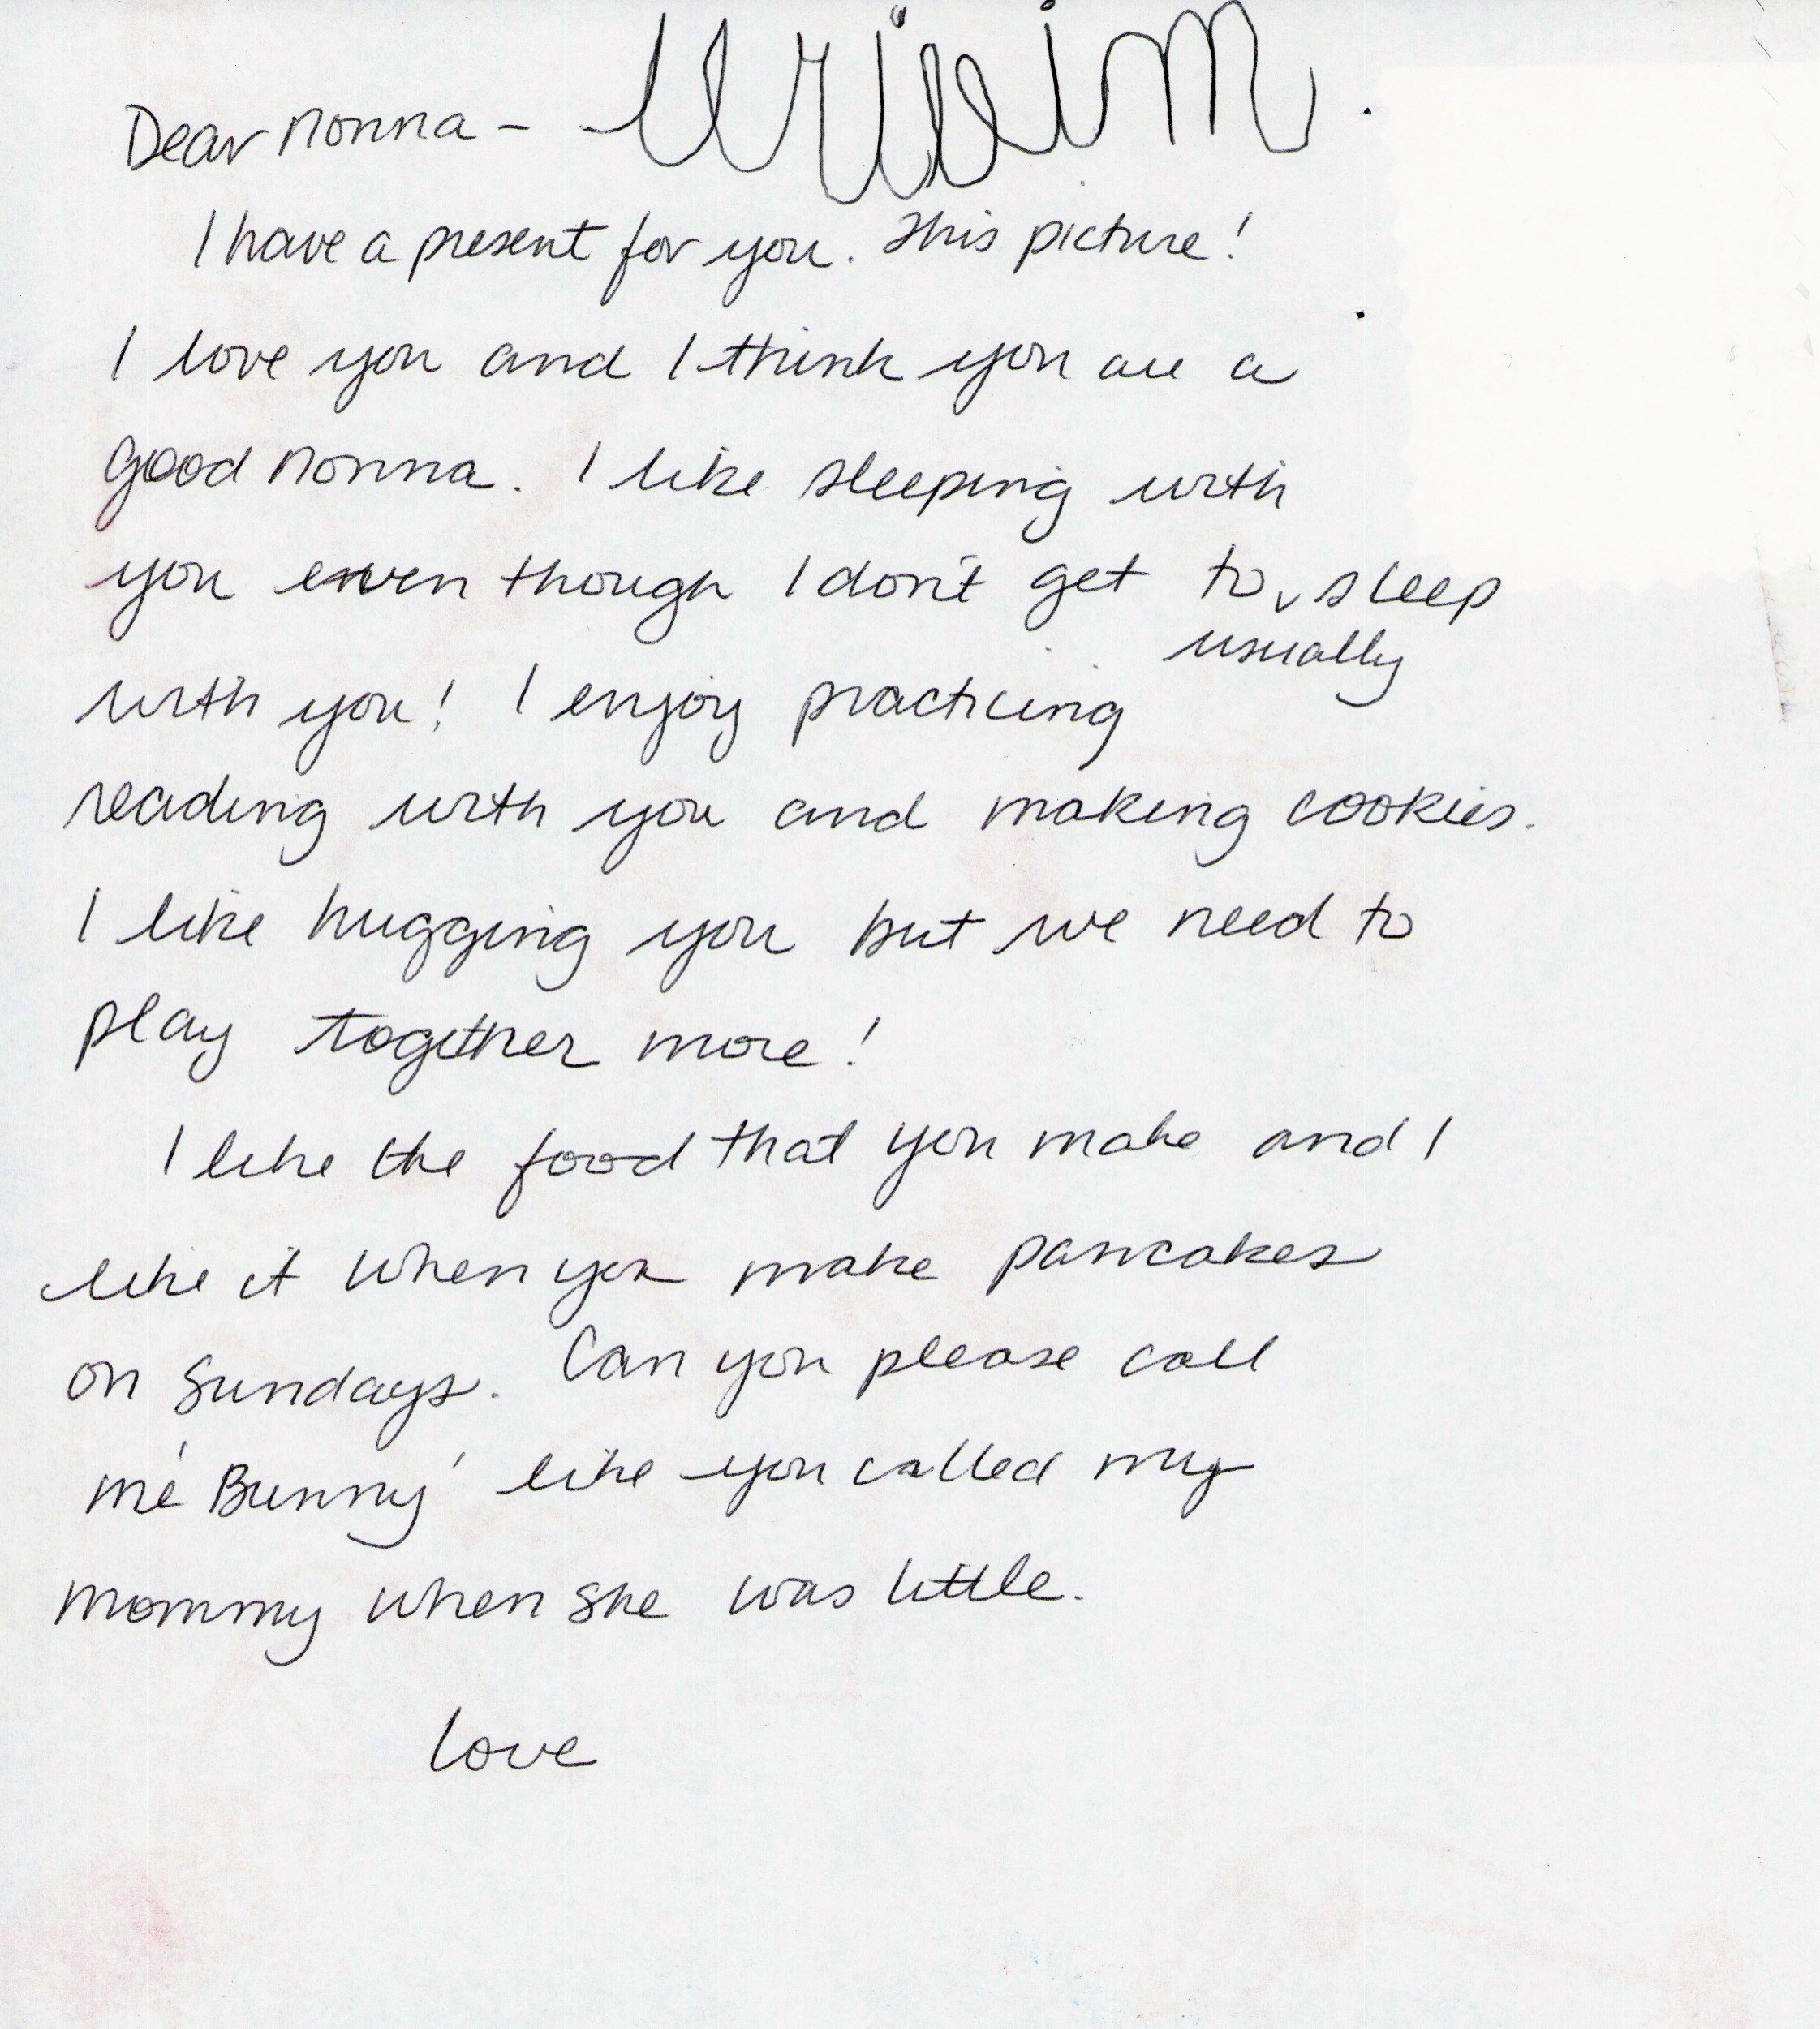 Dear Nonna -
I have a present for you. This picture!
I love you and I think you are a
good Nonna. I like sleeping with
you even though I don't get to sleep
usually
with you! I enjoy practicing
reading with you and making cookies.
I like hugging you but we need to
play together more!
I like the food that you make and I
like it when you make pancakes
on Sundays. Can you please call
me 'Bunny' like you called my
mommy when she was little.
love